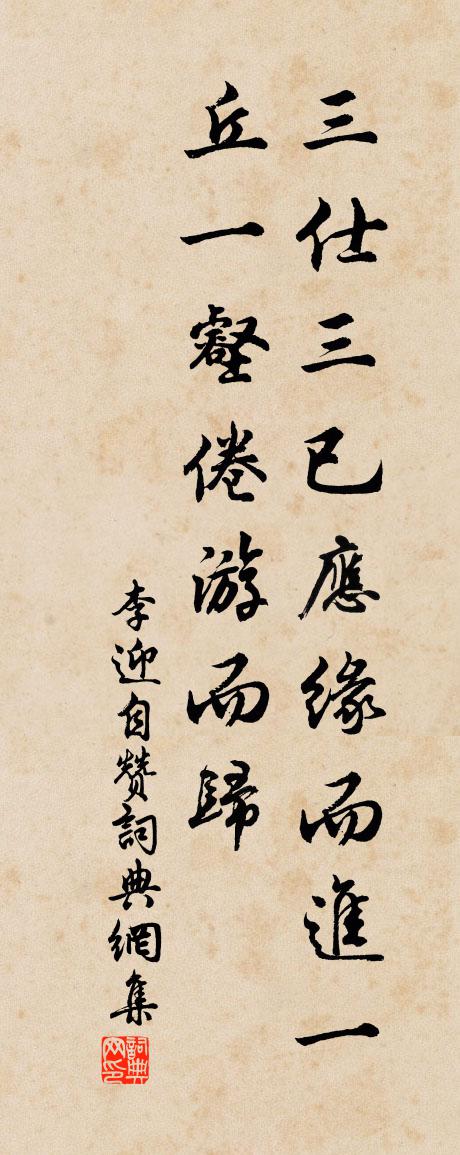 三仕三已應緣而進一
丘一壑倦游而歸
李迎自贊詞典網集
詞典网印